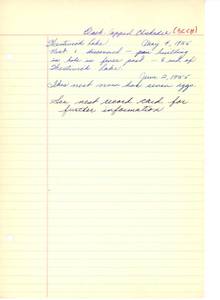 Black-capped Chickadee (BCCH)
Westwick Lake. May 4, 1955
Nest 1 discovered - pair building
in hole in fence post - E end of
Westwick Lake.
June 2, 1955
This nest now has seven eggs.
See nest record card for
further information